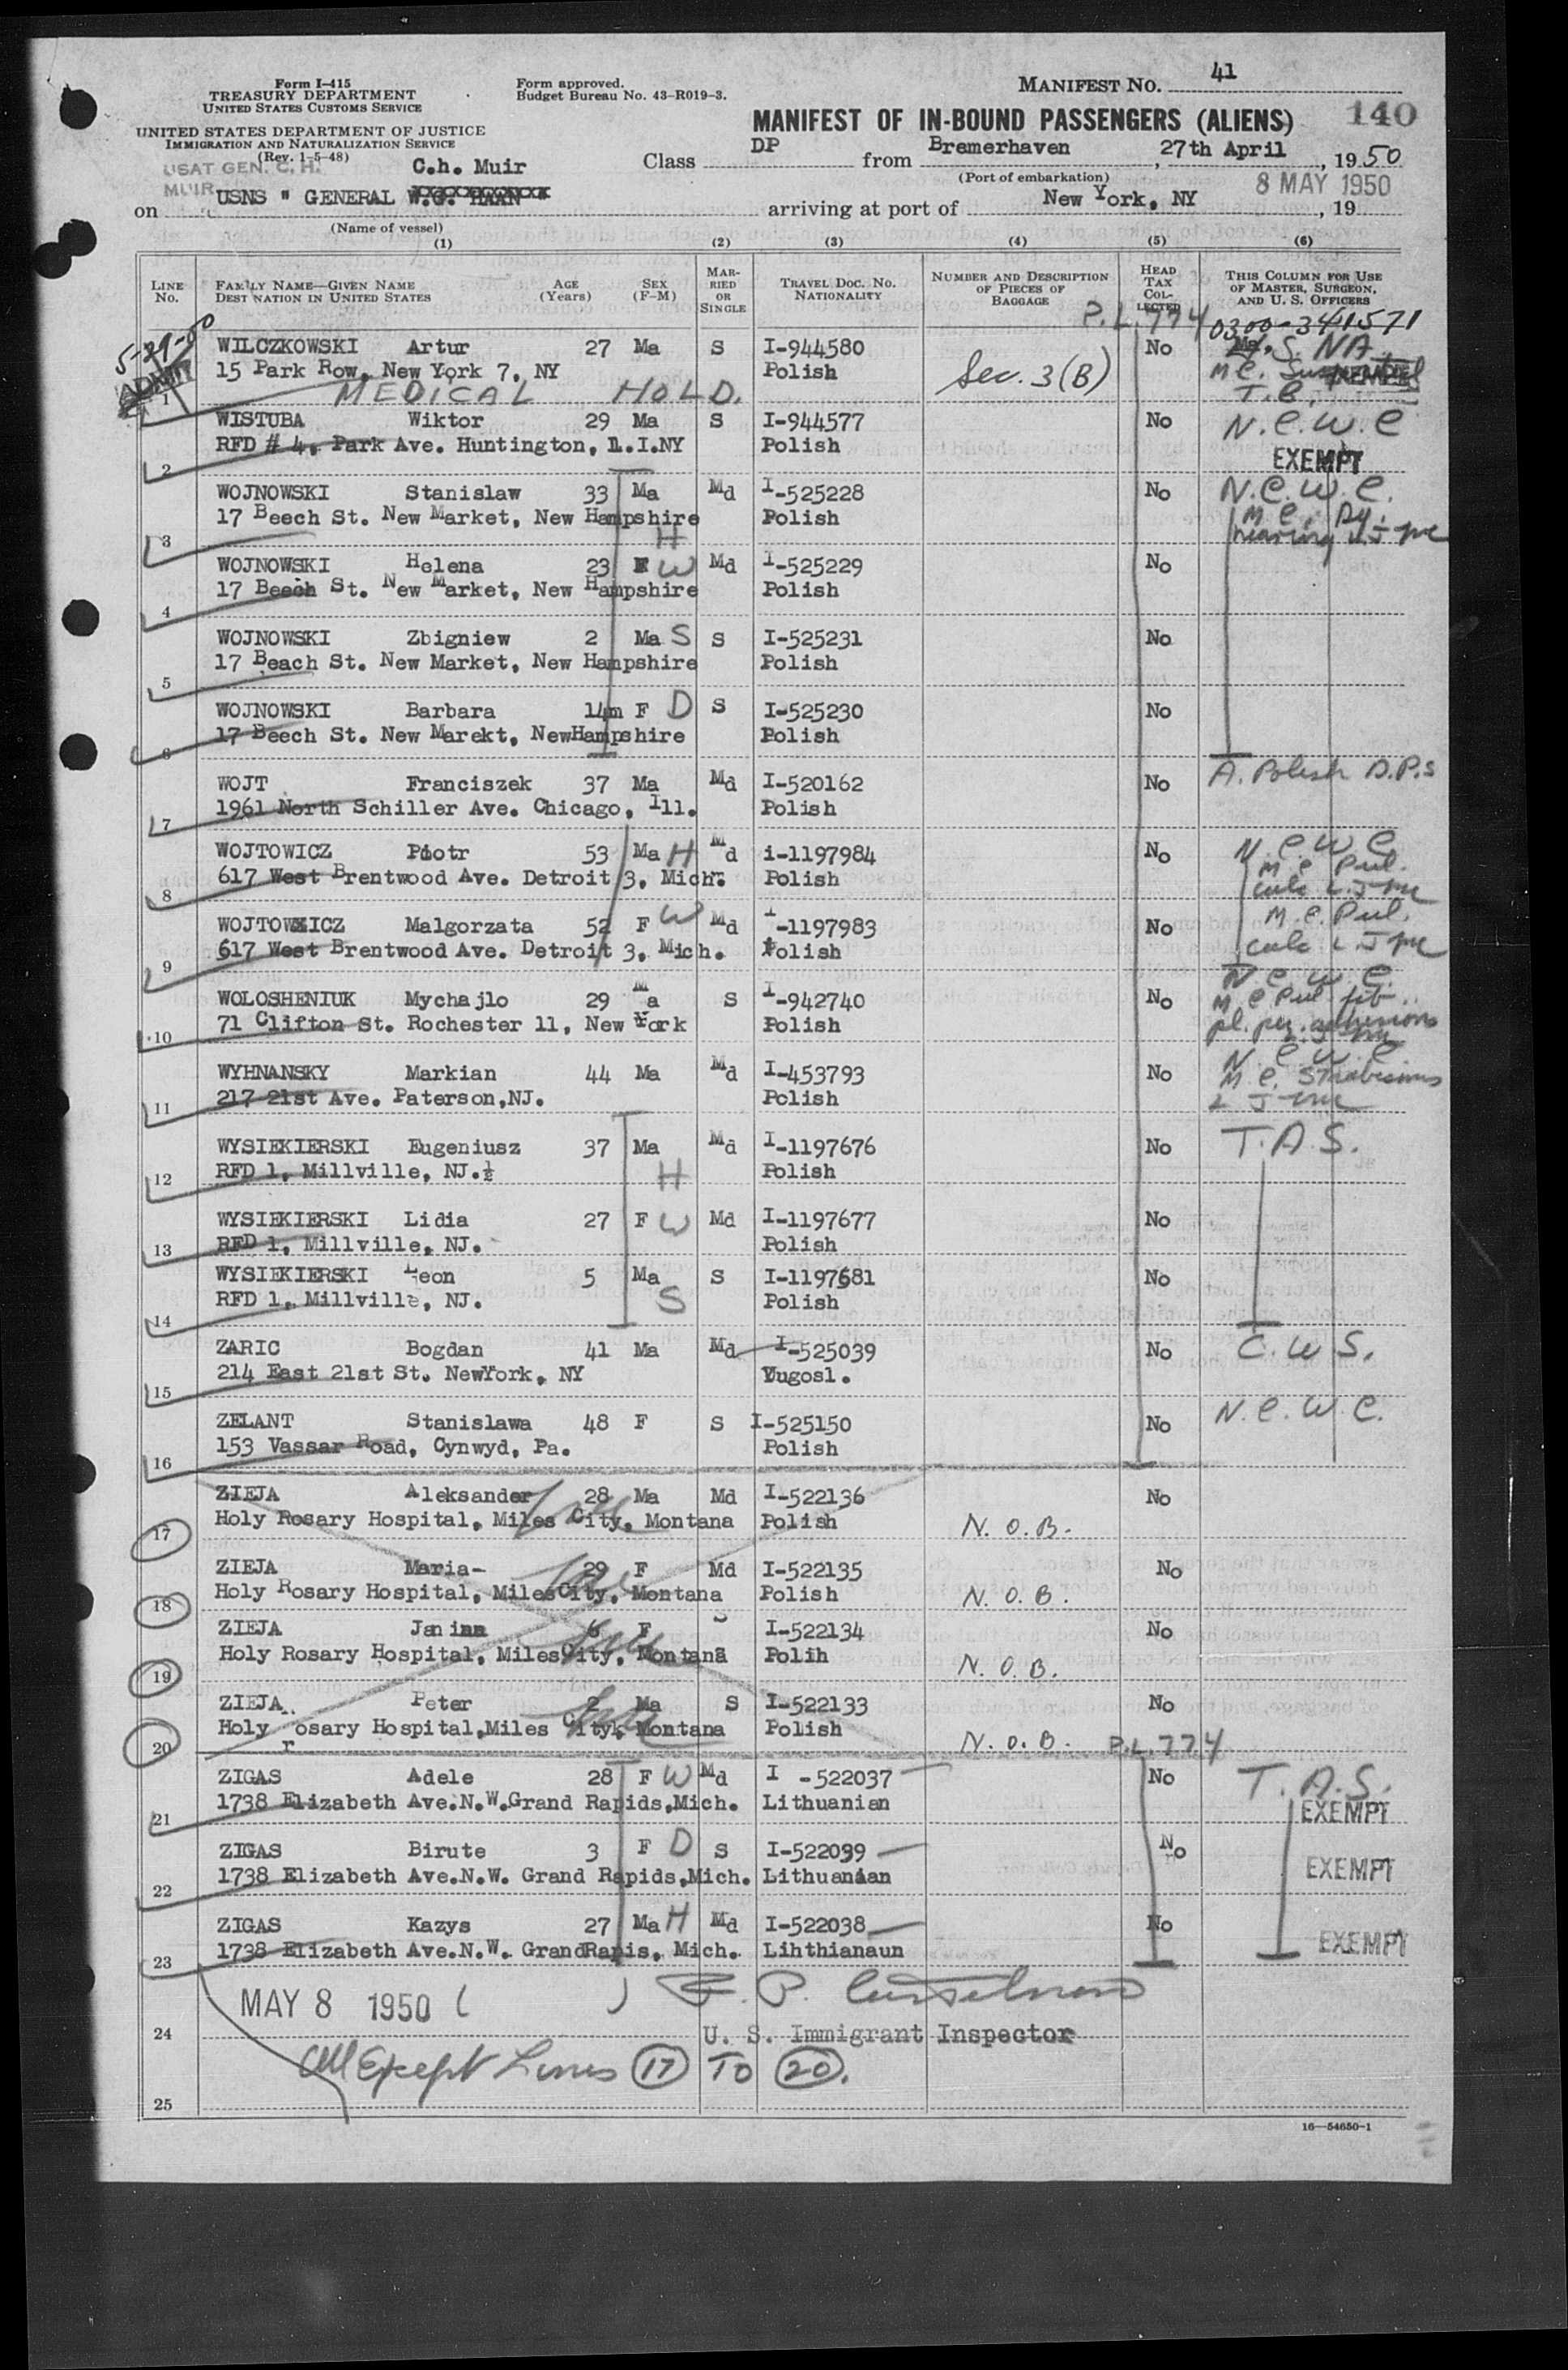 Form I-415
TREASURY DEPARTMENT
UNITED STATES CUSTOMS SERVICE
UNITED STATES DEPARTMENT OF JUSTICE
IMMIGRATION AND NATURALIZATION SERVICE
(Rev. 1-5-48)
Form approved.
Budget Bureau No. 43-R019-3.
MANIFEST NO. 41
MANIFEST OF IN-BOUND PASSENGERS (ALIENS) 140
Class DP from Bremerhaven, 27th April, 1950
(Port of embarkation)
USAT GEN. C. H. MUIR
C.h. Muir
on USNS " GENERAL W.G. HAAN" arriving at port of New York, NY 8 MAY 1950, 19
(Name of vessel)
(1) (2) (3) (4) (5) (6)
LINE No. FAMILY NAME—GIVEN NAME DESTINATION IN UNITED STATES AGE (Years) SEX (F-M) MARRIED OR SINGLE TRAVEL DOC. NO. NATIONALITY NUMBER AND DESCRIPTION OF PIECES OF BAGGAGE HEAD TAX COLLECTED THIS COLUMN FOR USE OF MASTER, SURGEON, AND U. S. OFFICERS
P.L. 774 0300-341571
5-29-50 ADMIT
WILCZKOWSKI Artur 27 Ma S I-944580 No
15 Park Row, New York 7, NY Polish Sec. 3(B)
1 MEDICAL HOLD. T.B.
WISTUBA Wiktor 29 Ma S I-944577 No N.C.W.C
RFD # 4, Park Ave. Huntington, L.I.NY Polish
2 EXEMPT
WOJNOWSKI Stanislaw 33 Ma Md I-525228 No N.C.W.C.
17 Beech St. New Market, New Hampshire Polish
3 H
WOJNOWSKI Helena 23 F W Md I-525229 No
17 Beech St. New Market, New Hampshire Polish
4
WOJNOWSKI Zbigniew 2 Ma S S I-525231 No
17 Beach St. New Market, New Hampshire Polish
5
WOJNOWSKI Barbara 14m F D S I-525230 No
17 Beech St. New Marekt, NewHampshire Polish
6
WOJT Franciszek 37 Ma Md I-520162 No A. Polish D.P.s
1961 North Schiller Ave. Chicago, Ill. Polish
7
WOJTOWICZ Piotr 53 Ma H Md i-1197984 No N.C.W.C
617 West Brentwood Ave. Detroit 3, Mich. Polish
8
WOJTOWICZ Malgorzata 52 F W Md I-1197983 No M.C. Pul.
617 West Brentwood Ave. Detroit 3, Mich. Polish
9
WOLOSHENIUK Mychajlo 29 Ma S I-942740 No N.C.W.C.
71 Clifton St. Rochester 11, New York Polish
10
WYHNANSKY Markian 44 Ma Md I-453793 No N.C.W.C.
217 21st Ave. Paterson,NJ. Polish M.C. Strabismus
11
WYSIEKIERSKI Eugeniusz 37 Ma Md I-1197676 No T.A.S.
RFD 1, Millville, NJ.½ Polish
12 H
WYSIEKIERSKI Lidia 27 F W Md I-1197677 No
RFD 1, Millville, NJ. Polish
13
WYSIEKIERSKI Leon 5 Ma S I-1197681 No
RFD 1, Millville, NJ. S Polish
14
ZARIC Bogdan 41 Ma Md I-525039 No C.W.S.
214 East 21st St. NewYork, NY Yugosl.
15
ZELANT Stanislawa 48 F S I-525150 No N.C.W.C.
153 Vassar Road, Cynwyd, Pa. Polish
16
ZIEJA Aleksander 28 Ma Md I-522136 No
Holy Rosary Hospital, Miles City, Montana Polish N.O.B.
17
ZIEJA Maria- 29 F Md I-522135 No
Holy Rosary Hospital, MilesCity, Montana Polish N.O.B.
18
ZIEJA Janina 6 F S I-522134 No
Holy Rosary Hospital, MilesCity, Montana Polih N.O.B.
19
ZIEJA Peter 2 Ma S I-522133 No
Holy rosary Hospital,Miles City, Montana Polish N.O.B. P.L. 774
20
ZIGAS Adele 28 F W Md I -522037 No T.A.S.
1738 Elizabeth Ave.N.W.Grand Rapids,Mich. Lithuanian EXEMPT
21
ZIGAS Birute 3 F D S I-522039 No
1738 Elizabeth Ave.N.W. Grand Rapids,Mich. Lithuanian EXEMPT
22
ZIGAS Kazys 27 Ma H Md I-522038 No
1738 Elizabeth Ave.N.W. GrandRapis, Mich. Lihthianaun EXEMPT
23
MAY 8 1950
24 U. S. Immigrant Inspector
All Except Lines 17 TO 20.
25
16—54650-1